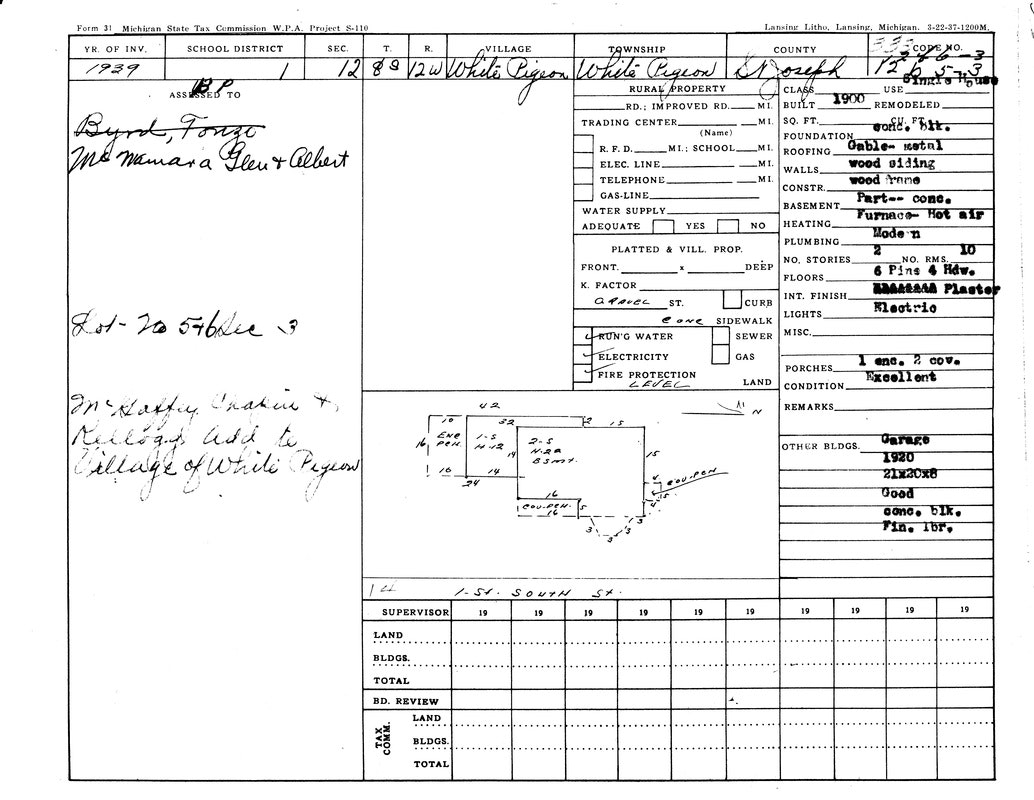 Form 31 Michigan State Tax Commission W.P.A. Project S-110
Lansing Litho, Lansing, Michigan. 3-22-37-1200M.
YR. OF INV. SCHOOL DISTRICT SEC. T. R. VILLAGE TOWNSHIP COUNTY CODE NO.
1939 1 12 8S 12W White Pigeon White Pigeon St Joseph
ASSESSED TO
BP
Byrd, Tonzo
McNamara Glen & Albert
Lot - No 5+6 Sec 3
Kellogg add to
Village of White Pigeon
RURAL PROPERTY
RD.; IMPROVED RD. MI.
TRADING CENTER MI.
(Name)
R. F. D. MI.; SCHOOL MI.
ELEC. LINE MI.
TELEPHONE MI.
GAS-LINE
WATER SUPPLY
ADEQUATE YES NO
PLATTED & VILL. PROP.
FRONT. x DEEP
K. FACTOR
GRAVEL ST. CURB
CONC SIDEWALK
RUN'G WATER SEWER
ELECTRICITY GAS
FIRE PROTECTION
LEVEL LAND
CLASS USE Single House
BUILT 1900 REMODELED
SQ. FT. CU. FT.
FOUNDATION conc. blk.
ROOFING Gable- metal
WALLS wood siding
CONSTR. wood frame
BASEMENT Part-- conc.
HEATING Furnace- Hot air
PLUMBING Modern
NO. STORIES 2 NO. RMS. 10
FLOORS 6 Pins 4 Hdw.
INT. FINISH Plaster
LIGHTS Electric
MISC.
PORCHES 1 enc. 2 cov.
CONDITION Excellent
REMARKS
OTHER BLDGS. Garage
1920
21x20x8
Good
conc. blk.
Fin. lbr.
42
10 32 2 15
N
16 ENC PCH 1-S H-12 14 2-S H-22 BSMT. 15
10 14
24
4 COV-PCH
16
COV-PCH. 5
16
3
3 3
1-St. SOUTH St.
SUPERVISOR 19 19 19 19 19 19 19 19 19 19
LAND
BLDGS.
TOTAL
BD. REVIEW
TAX COMM.
LAND
BLDGS.
TOTAL